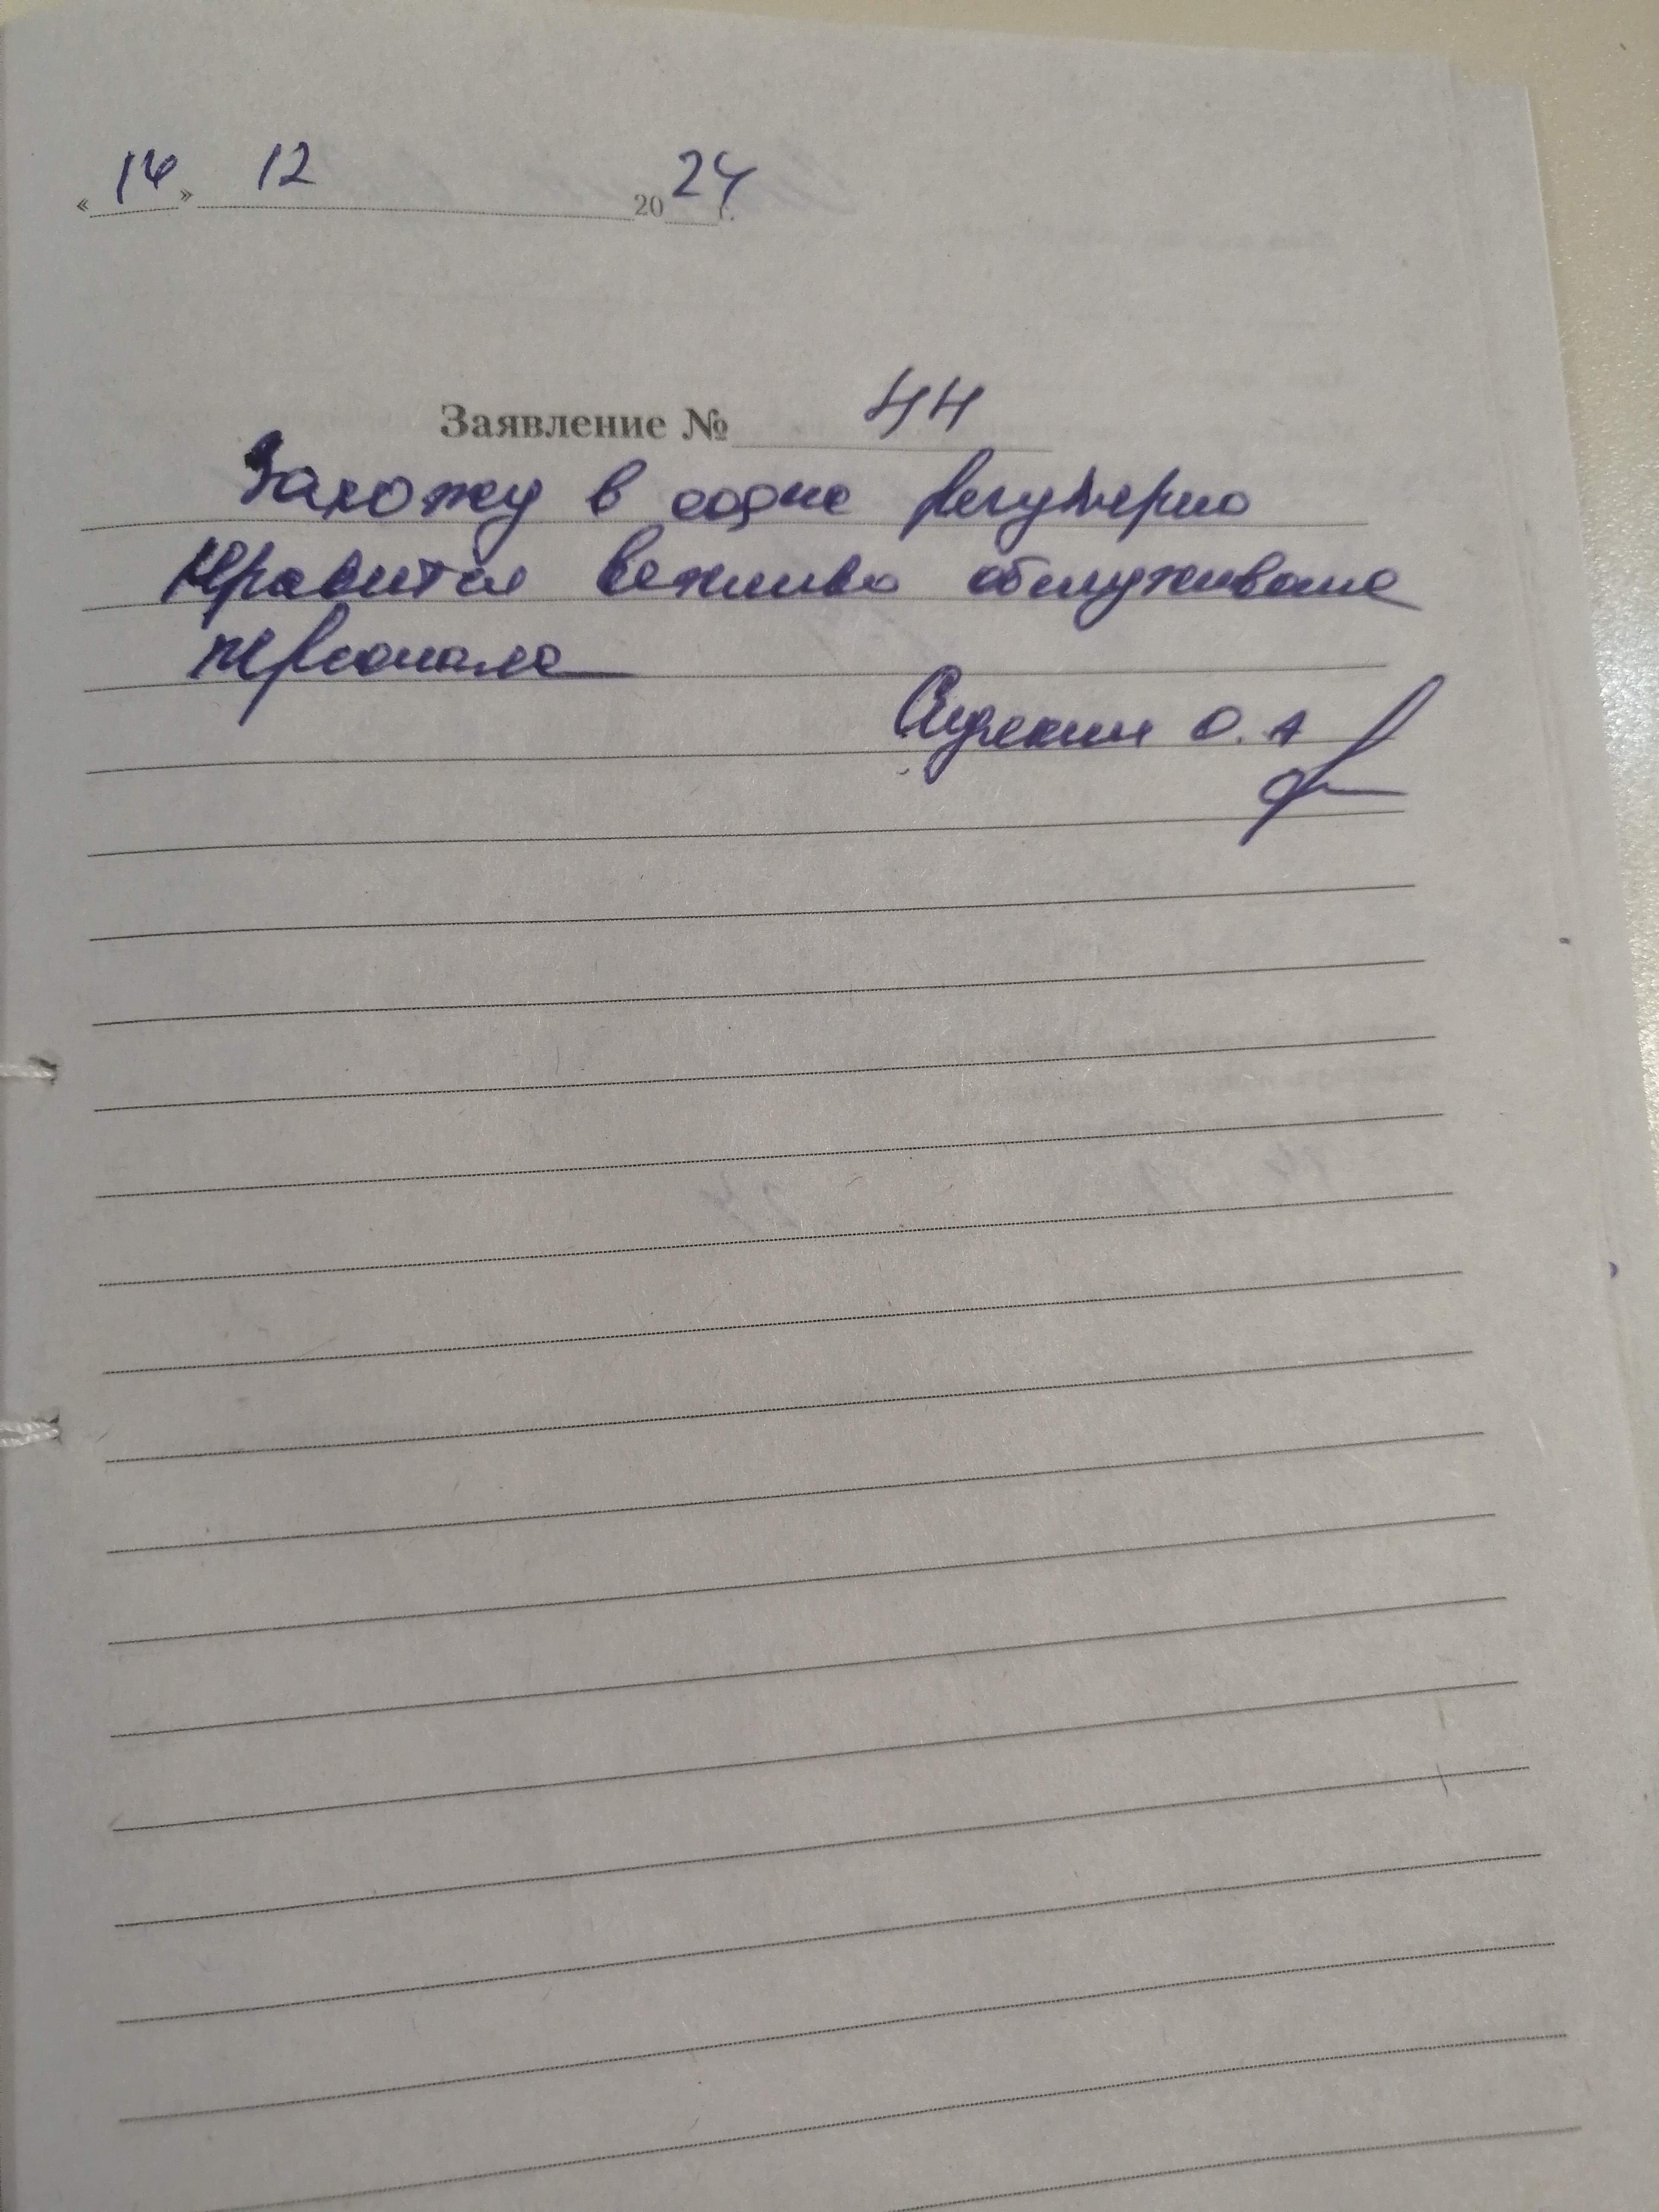 « 14 » 12 2024 г.
Заявление № 44
Захожу в регулярно
Нравится вежливо обслуживание
персонала
О. А